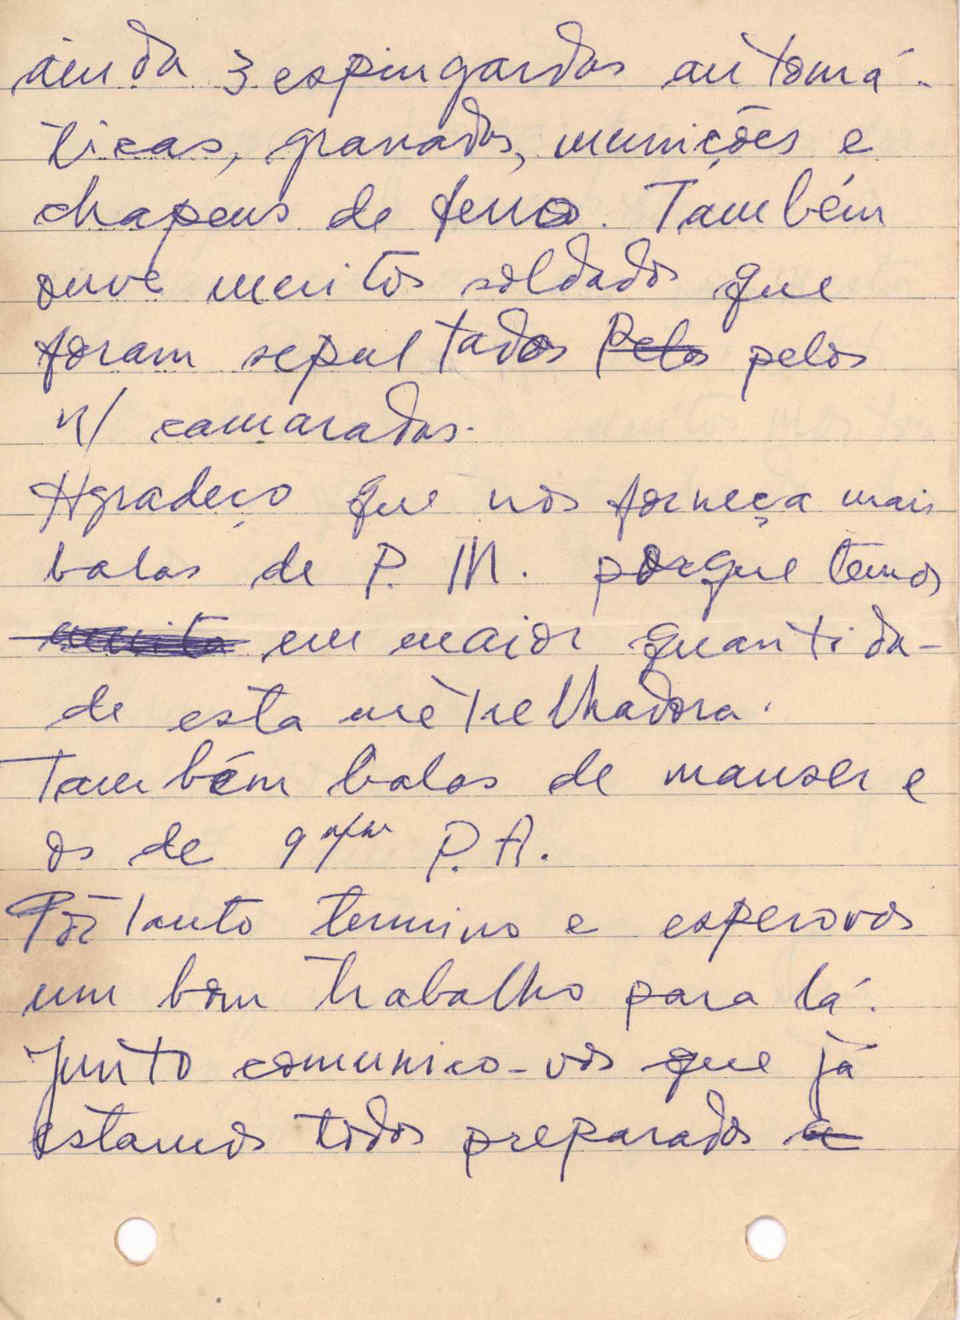 ainda 3 espingardas automá-
ticas, granadas, munições e
chapeus de ferro. Também
ouve muitos soldados que
foram sepultados pelos pelos
n/ camaradas.
Agradeço que nos forneça mais
balas de P. M. porque temos
muita em maior quantida-
de esta mètrelhadora.
Também balas de mauser e
os de 9 m/m P.A.
Portanto termino e esperovos
um bom trabalho para lá.
Junto comunico-vos que já
estamos todos preparados